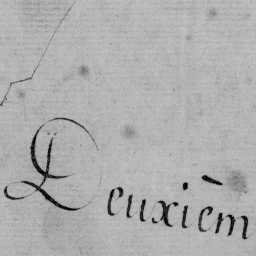 Deuxièm